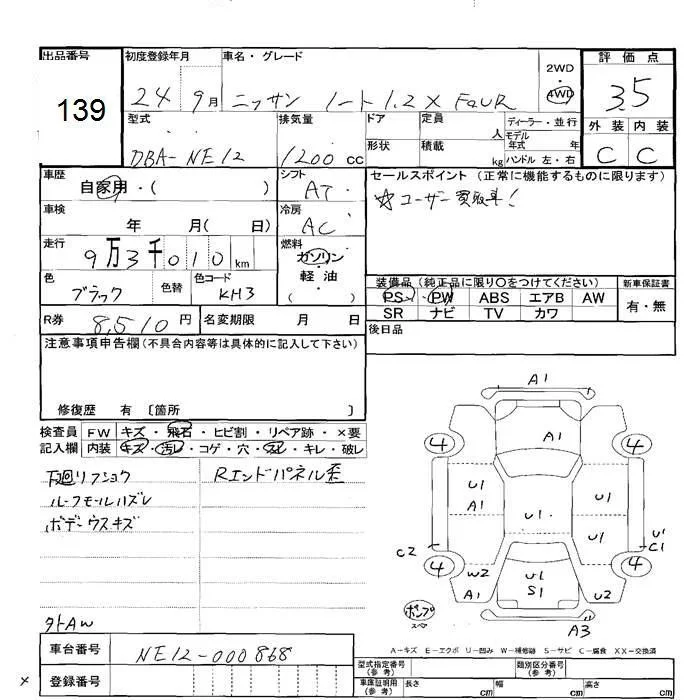 出品番号
139
初度登録年月
24 9月
車名・グレード
ニッサン ノート 1.2 X FOUR
2WD
・
4WD
評価点
3.5
型式
DBA-NE12
排気量
1200 cc
ドア
定員
人
ディーラー・並行
モデル
年式 年
形状
積載
kg
ハンドル 左・右
外装 内装
C C
車歴
自家用・( )
シフト
AT
セールスポイント (正常に機能するものに限ります)
☆ユーザー買取車!
車検
年 月( 日)
冷房
AC
走行
9万3千010km
燃料
ガソリン
・
軽油
( )
色
ブラック
色替
色コード
KH3
装備品(純正品に限り○をつけてください)
新車保証書
PS・PW ABS エアB AW
SR ナビ TV カワ
有・無
R券 8,510円
名変期限 月 日
後日品
注意事項申告欄(不具合内容等は具体的に記入して下さい)
修復歴 有 〔箇所 〕
検査員
記入欄
FW キズ・飛石・ヒビ割・リペア跡・×要
内装 キズ・汚レ・コゲ・穴・スレ・キレ・破レ
下廻リフショク
Rエンドパネル歪
ルーフモールハズレ
ボデーウスキズ
外AW
A1
4
4
A1
U1
A1
U1
U1
U1
C1
C2
4
4
W2
A1
U1
S1
U2
ポンプ
スペア
A3
A-キズ E-エクボ U-凹み W-補修跡 S-サビ C-腐食 XX-交換済
車台番号
NE12-000868
登録番号
×
型式指定番号
(参考)
類別区分番号
(参考)
車庫証明用
(参考)
長さ cm
幅 cm
高さ cm